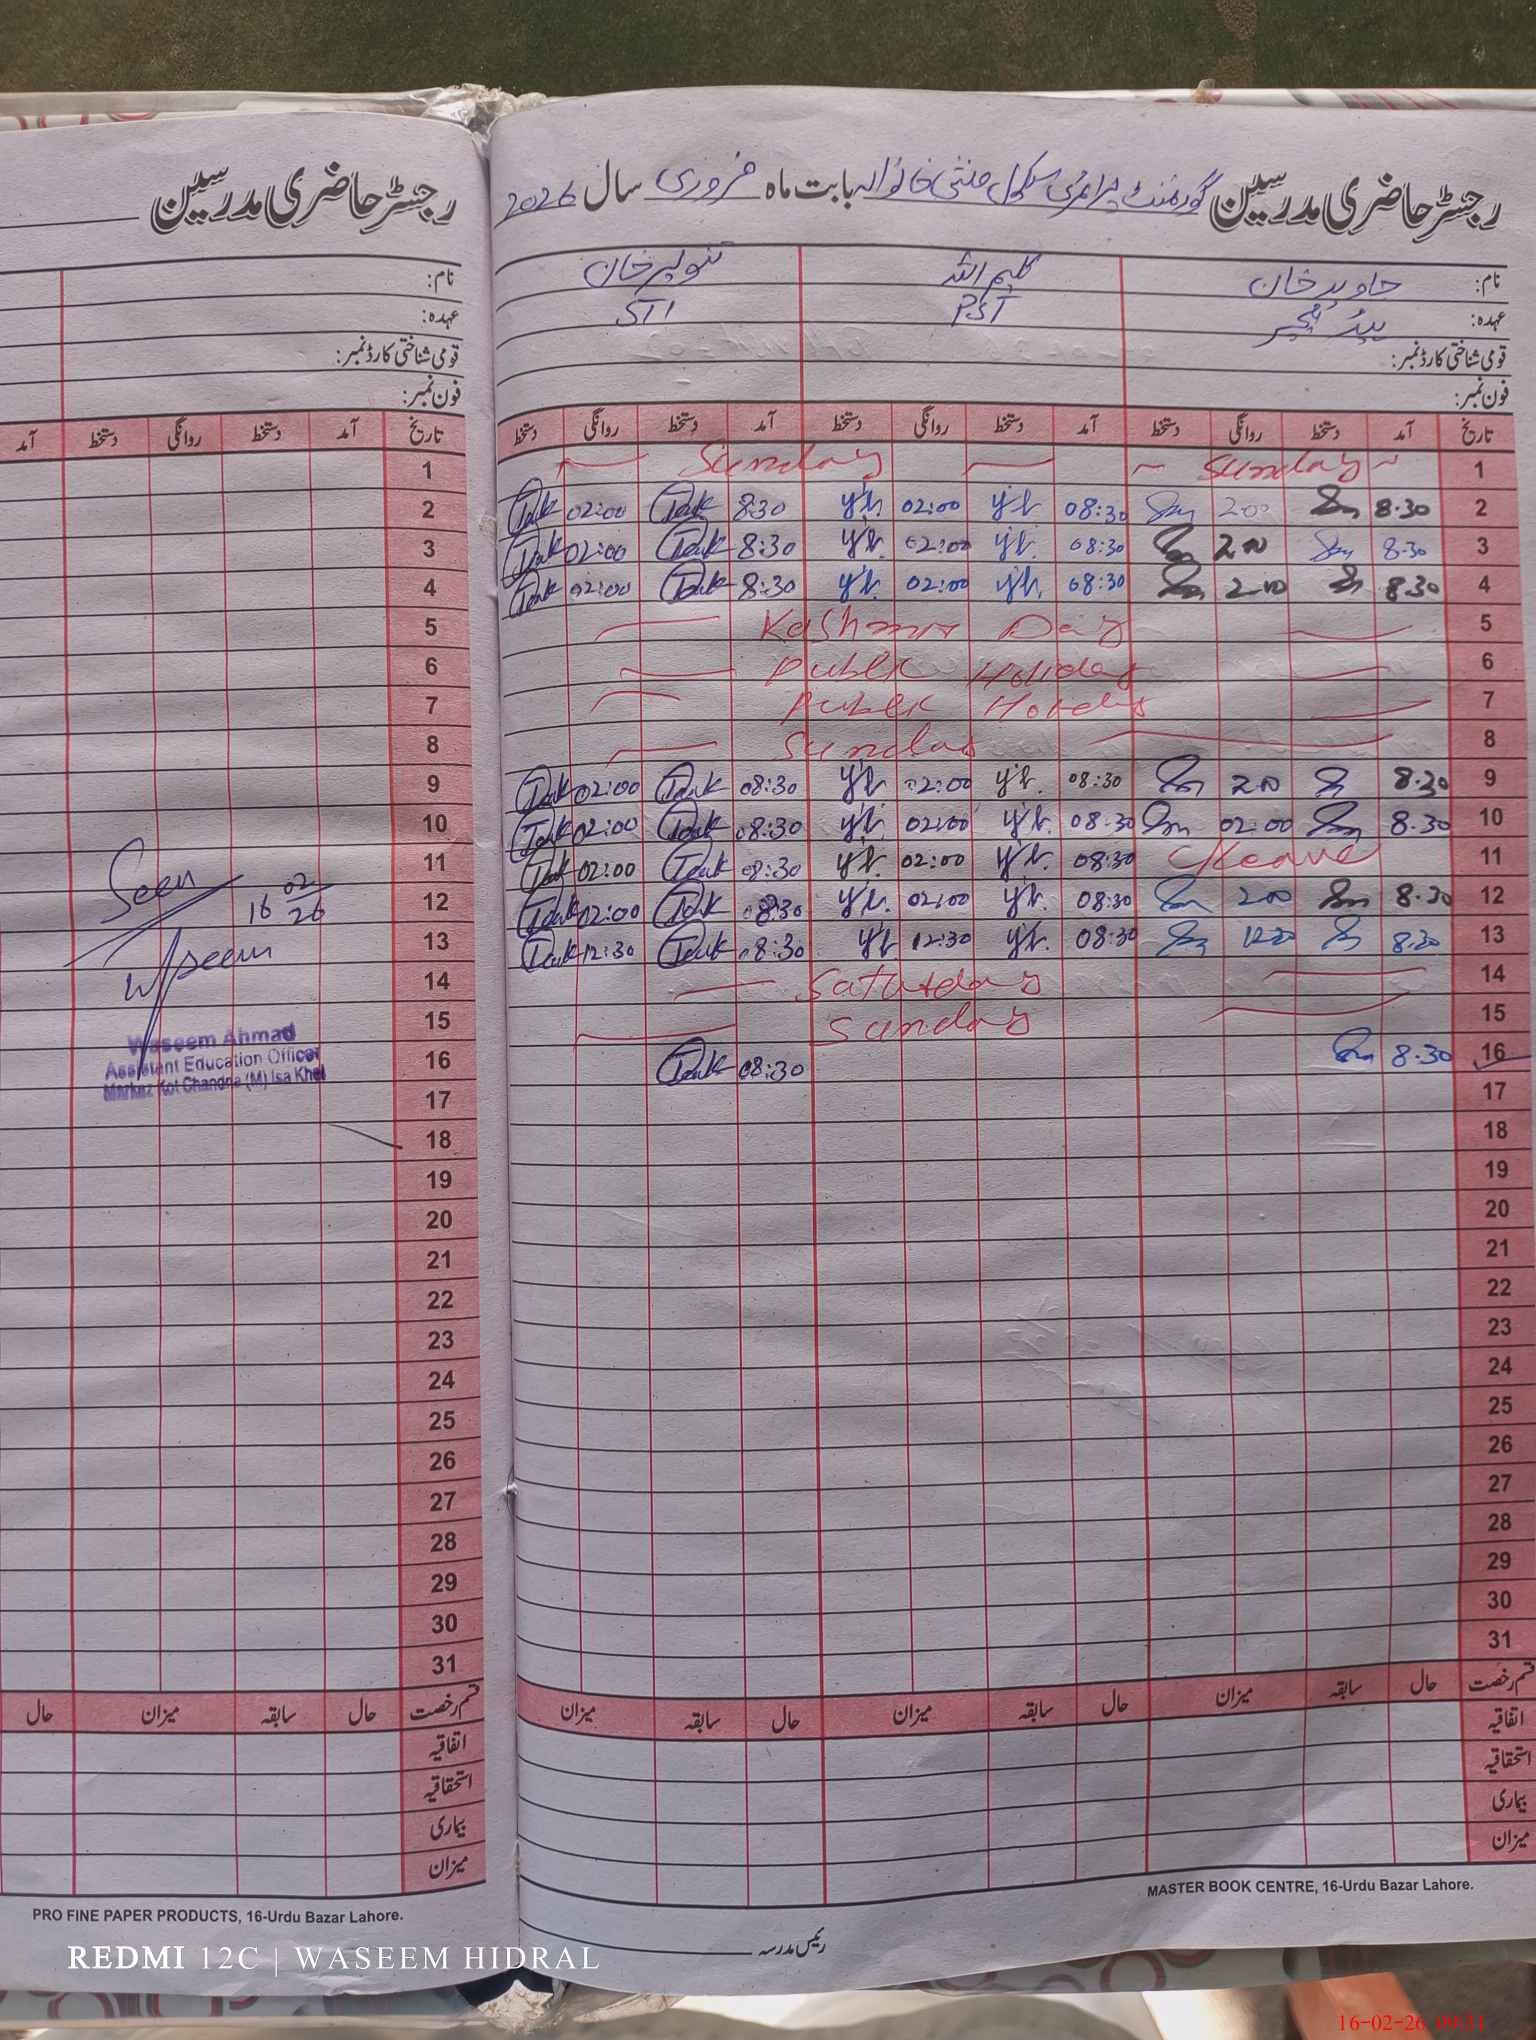 رجسٹر حاضری مدرسین گورنمنٹ پرائمری سکول خانوالہ بابت ماہ فروری سال 2026
نام: جاوید خان کلیم اللہ تنویر خان
عہدہ: ہیڈ ٹیچر PST STI
قومی شناختی کارڈ نمبر:
فون نمبر:
تاریخ آمد دستخط روانگی دستخط آمد دستخط روانگی دستخط آمد دستخط روانگی دستخط
1 Sunday Sunday
2 8.30 2.00 08:30 02:00 8:30 02:00
3 8.30 2.00 08:30 02:00 8:30 02:00
4 8.30 2.00 08:30 02:00 8:30 02:00
5 Kashmir Day
6 Public Holiday
7 Public Holiday
8 Sunday
9 8.30 2.00 08:30 02:00 08:30 02:00
10 8.30 02.00 08:30 02:00 08:30 02:00
11 Leave 08:30 02:00 08:30 02:00
12 8.30 2.00 08:30 02:00 08:30 02:00
13 8.30 12.30 08:30 12:30 08:30 12:30
14 Saturday
15 Sunday
16 8.30 08:30
17
18
19
20
21
22
23
24
25
26
27
28
29
30
31
قسم رخصت حال سابقہ میزان حال سابقہ میزان حال سابقہ میزان
اتفاقیہ
استحقاقیہ
بیماری
میزان
MASTER BOOK CENTRE, 16-Urdu Bazar Lahore.
رئیس مدرسہ
رجسٹر حاضری مدرسین
نام:
عہدہ:
قومی شناختی کارڈ نمبر:
فون نمبر:
تاریخ آمد دستخط روانگی دستخط آمد
1
2
3
4
5
6
7
8
9
10
11
12
13
14
15
16
17
18
19
20
21
22
23
24
25
26
27
28
29
30
31
Seen
16 02/26
Waseem
Waseem Ahmad
Assistent Education Officer
Markaz Kot Chandna (M) Isa Khel
قسم رخصت حال سابقہ میزان حال
اتفاقیہ
استحقاقیہ
بیماری
میزان
PRO FINE PAPER PRODUCTS, 16-Urdu Bazar Lahore.
REDMI 12C | WASEEM HIDRAL
16-02-26 09:31